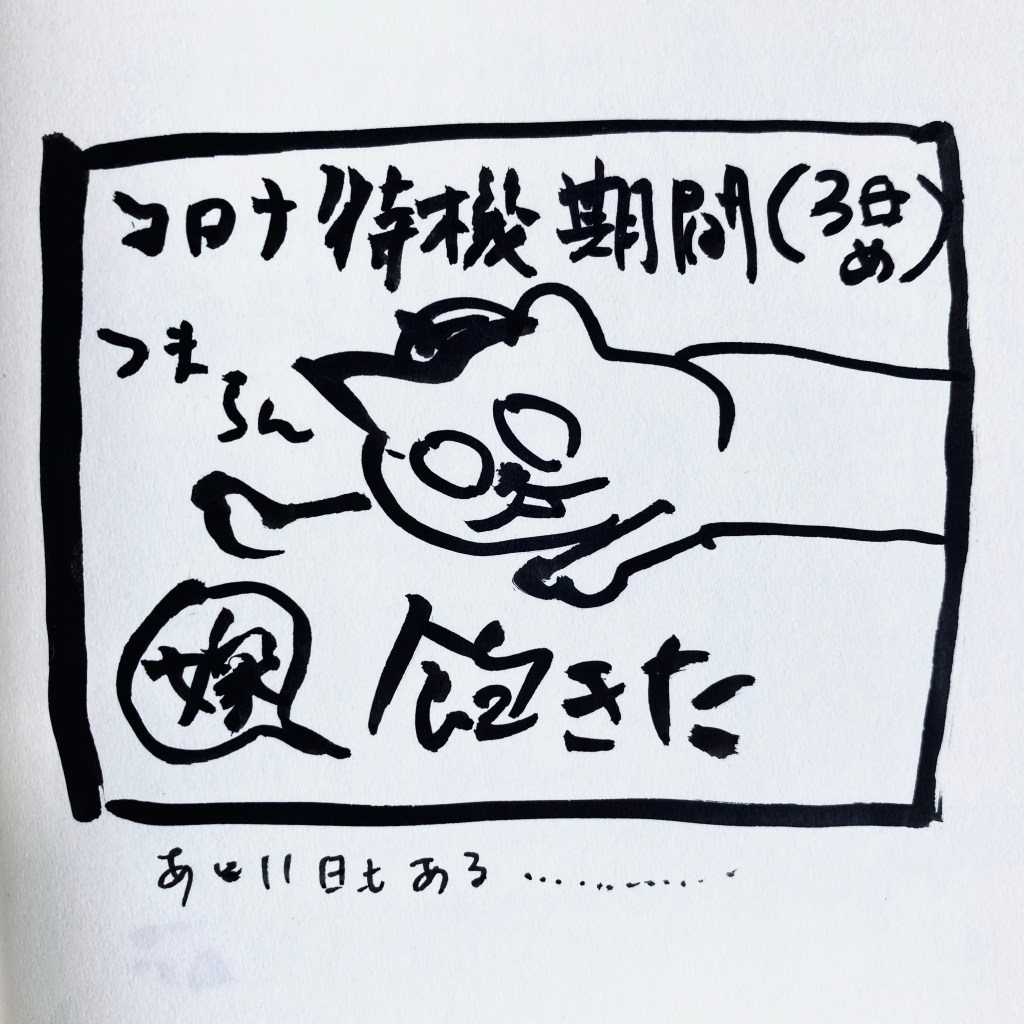 コロナ待機期間(3日め)
つまらん
嫁
飽きた
あと11日もある............